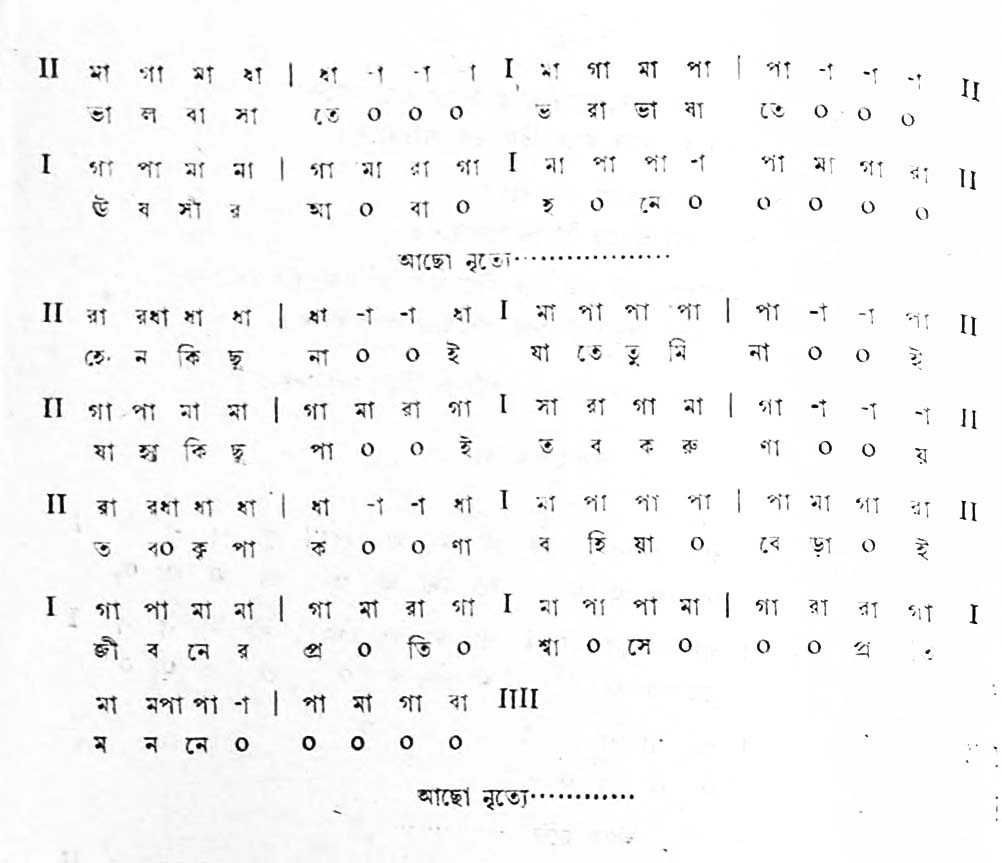 II মা গা মা ধা | ধা -া -া া I মা গা মা পা | পা -া -া -া II
ভা ল বা সা তে ০ ০ ০ ভ রা ভা ষা তে ০ ০ ০
I গা পা মা মা | গা মা রা গা I মা পা পা -া পা মা গা রা II
ঊ ষ সী র আ ০ বা ০ হ ০ নে ০ ০ ০ ০ ০
আছো নৃত্যে··················
II রা রধা ধা ধা | ধা -া -া ধা I মা পা পা পা | পা -া -া পা II
হে ন কি ছু না ০ ০ ই যা তে তু মি না ০ ০ ই
II গা পা মা মা | গা মা রা গা I সা রা গা মা | গা -া -া -া II
যা কি ছু পা ০ ০ ই ত ব ক রু ণা ০ ০ য়
II রা রধা ধা ধা | ধা -া -া ধা I মা পা পা পা | পা মা গা রা II
ত ব০ কৃ পা ক ০ ০ ণা ব হি য়া ০ বে ড়া ০ ই
I গা পা মা মা | গা মা রা গা I মা পা পা মা | গা রা রা গা I
জী ব নে র প্র ০ তি ০ শ্বা ০ সে ০ ০ ০ প্র
মা মপা পা -া | পা মা গা রা IIII
ম ন নে ০ ০ ০ ০ ০
আছো নৃত্যে·············